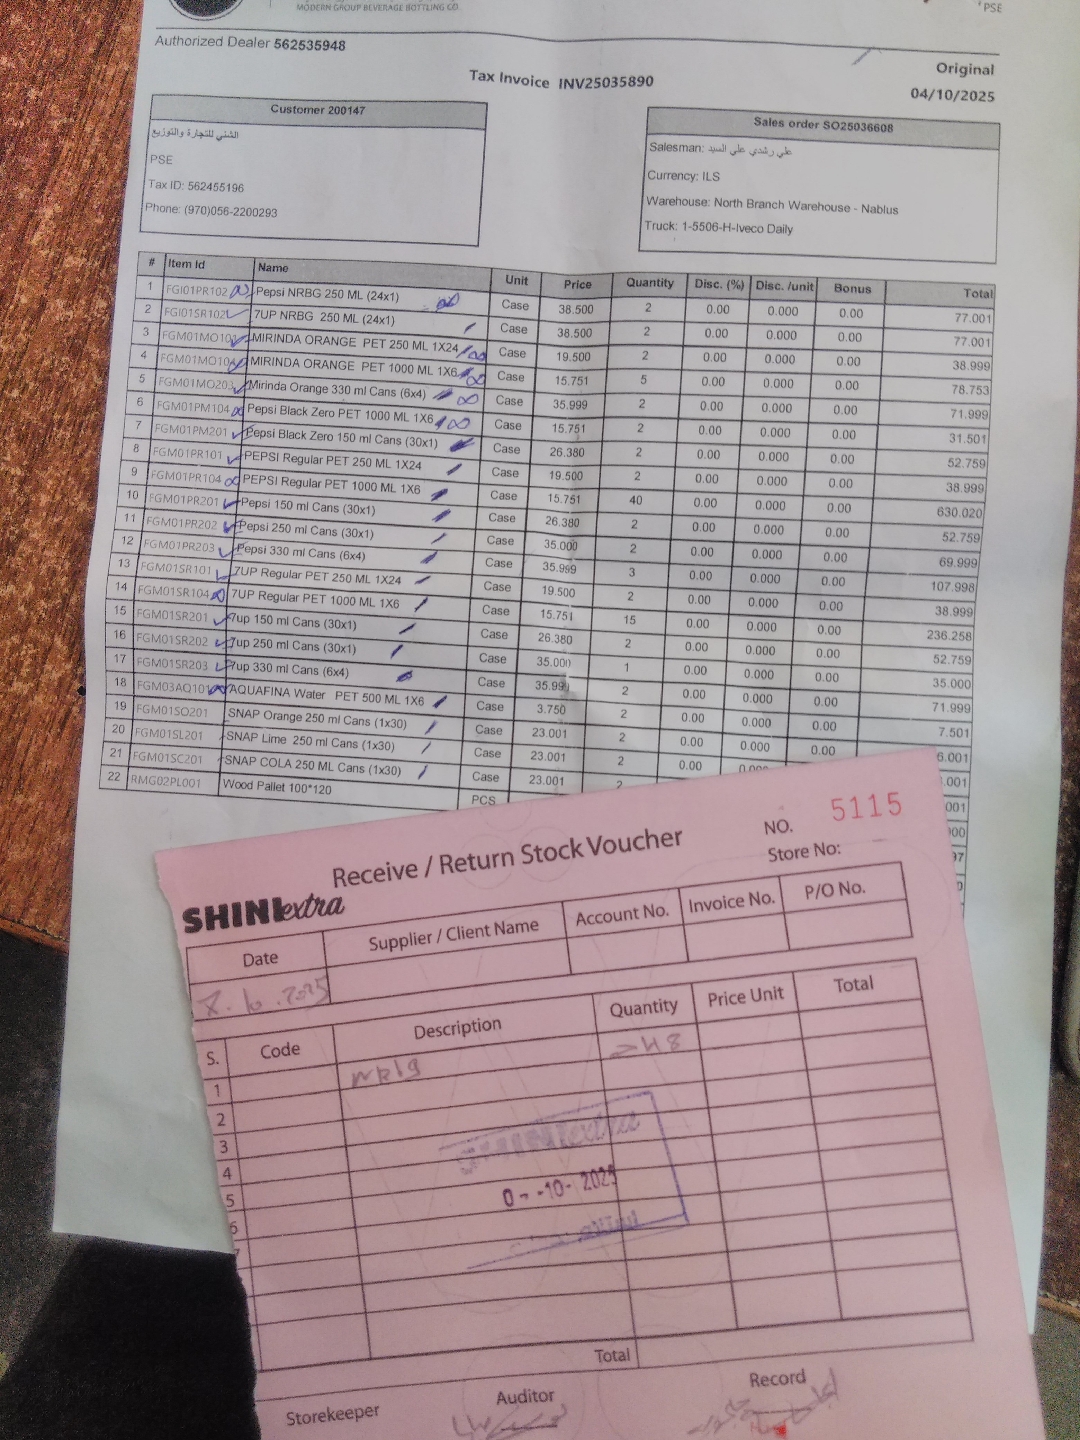 MODERN GROUP BEVERAGE BOTTLING CO.
PSE
Authorized Dealer 562535948
Original
Tax Invoice INV25035890
04/10/2025
Customer 200147
الشني للتجارة والتوزيع
PSE
Tax ID: 562455196
Phone: (970)056-2200293
Sales order SO25036608
Salesman: علي رشدي علي السيد
Currency: ILS
Warehouse: North Branch Warehouse - Nablus
Truck: 1-5506-H-Iveco Daily
# Item Id Name Unit Price Quantity Disc. (%) Disc. /unit Bonus Total
1 FGI01PR102 Pepsi NRBG 250 ML (24x1) Case 38.500 2 0.00 0.000 0.00 77.001
2 FGI01SR102 7UP NRBG 250 ML (24x1) Case 38.500 2 0.00 0.000 0.00 77.001
3 FGM01MO101 MIRINDA ORANGE PET 250 ML 1X24 Case 19.500 2 0.00 0.000 0.00 38.999
4 FGM01MO104 MIRINDA ORANGE PET 1000 ML 1X6 Case 15.751 5 0.00 0.000 0.00 78.753
5 FGM01MO203 Mirinda Orange 330 ml Cans (6x4) Case 35.999 2 0.00 0.000 0.00 71.999
6 FGM01PM104 Pepsi Black Zero PET 1000 ML 1X6 Case 15.751 2 0.00 0.000 0.00 31.501
7 FGM01PM201 Pepsi Black Zero 150 ml Cans (30x1) Case 26.380 2 0.00 0.000 0.00 52.759
8 FGM01PR101 PEPSI Regular PET 250 ML 1X24 Case 19.500 2 0.00 0.000 0.00 38.999
9 FGM01PR104 PEPSI Regular PET 1000 ML 1X6 Case 15.751 40 0.00 0.000 0.00 630.020
10 FGM01PR201 Pepsi 150 ml Cans (30x1) Case 26.380 2 0.00 0.000 0.00 52.759
11 FGM01PR202 Pepsi 250 ml Cans (30x1) Case 35.000 2 0.00 0.000 0.00 69.999
12 FGM01PR203 Pepsi 330 ml Cans (6x4) Case 35.999 3 0.00 0.000 0.00 107.998
13 FGM01SR101 7UP Regular PET 250 ML 1X24 Case 19.500 2 0.00 0.000 0.00 38.999
14 FGM01SR104 7UP Regular PET 1000 ML 1X6 Case 15.751 15 0.00 0.000 0.00 236.258
15 FGM01SR201 7up 150 ml Cans (30x1) Case 26.380 2 0.00 0.000 0.00 52.759
16 FGM01SR202 7up 250 ml Cans (30x1) Case 35.000 1 0.00 0.000 0.00 35.000
17 FGM01SR203 7up 330 ml Cans (6x4) Case 35.999 2 0.00 0.000 0.00 71.999
18 FGM03AQ101 AQUAFINA Water PET 500 ML 1X6 Case 3.750 2 0.00 0.000 0.00 7.501
19 FGM01SO201 SNAP Orange 250 ml Cans (1x30) Case 23.001 2 0.00 0.000 0.00 6.001
20 FGM01SL201 SNAP Lime 250 ml Cans (1x30) Case 23.001 2 0.00 0.000 .001
21 FGM01SC201 SNAP COLA 250 ML Cans (1x30) Case 23.001 2 001
22 RMG02PL001 Wood Pallet 100*120 PCS
Receive / Return Stock Voucher
NO. 5115
Store No:
SHINI extra
Date Supplier / Client Name Account No. Invoice No. P/O No.
S. Code Description Quantity Price Unit Total
1
2
3
4
5
6
SHINI extra
-10- 2025
Total
Storekeeper Auditor Record